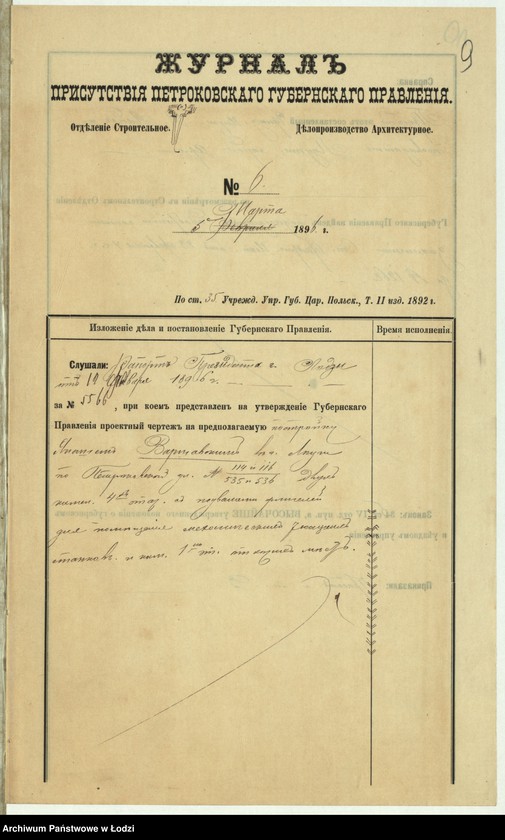 9
ЖУРНАЛЪ
ПРИСУТСТВІЯ ПЕТРОКОВСКАГО ГУБЕРНСКАГО ПРАВЛЕНІЯ.
Отдѣленіе Строительное.
Дѣлопроизводство Архитектурное.
№ 6.
Марта
5 Февраля 1896 г.
По ст. 35 Учрежд. Упр. Губ. Цар. Польск., Т. II изд. 1892 г.
Изложеніе дѣла и постановленіе Губернскаго Правленія.
Время исполненія.
Слушали: Рапортъ Президента г. Лодзи
отъ 19 Января 1896 г.
за № 5566, при коемъ представленъ на утвержденіе Губернскаго
Правленія проектный чертежъ на предполагаемую постройку
Варшавскимъ въ г. Лодзи
по Петроковской ул. № 114 и 116
535 и 536 двухъ
камен. 4хъ этаж. съ подвалами флигелей
для помѣщенія механической
станковъ и кам. 1 эт.
Archiwum Państwowe w Łodzi